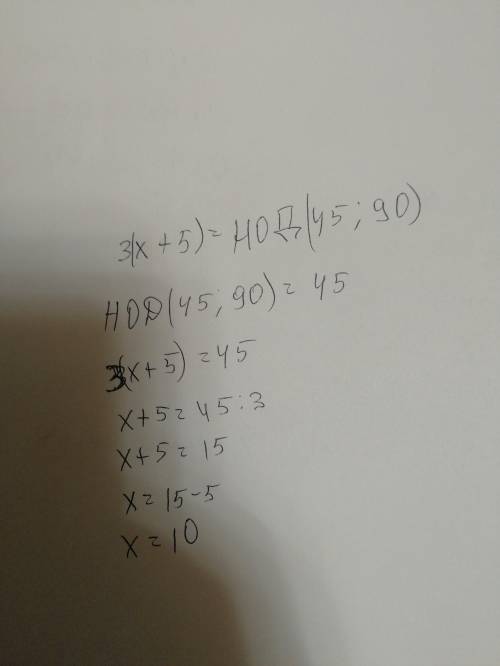 3(x + 5) = НОД(45; 90)
НОД(45; 90) = 45
3(x + 5) = 45
x + 5 = 45 : 3
x + 5 = 15
x = 15 - 5
x = 10